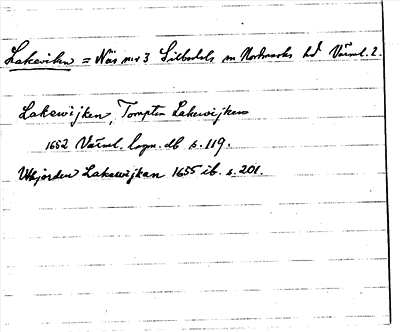 Lakeviken = Näs nr 3 Silbodals sn Nordmarks hd Värml. l.
Lakewijken, Tompten Lakewijken
1652 Värml. lagm. db s. 119.
Utjorden Lakewijkan 1655 ib. s. 201.